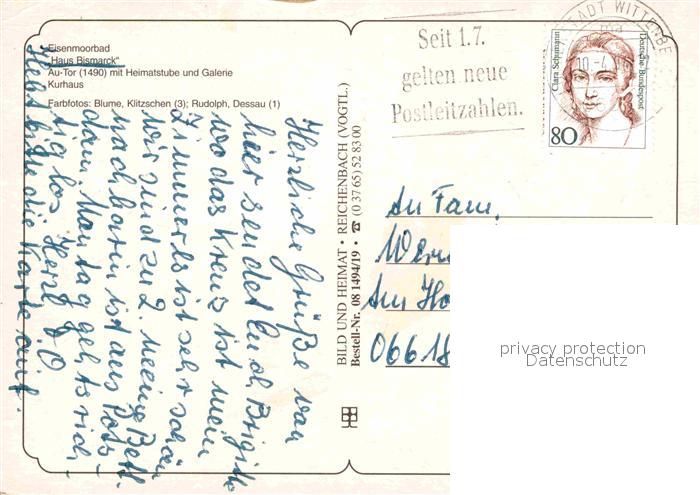 Eisenmoorbad
"Haus Bismarck"
Au-Tor (1490) mit Heimatstube und Galerie
Kurhaus
Farbfotos: Blume, Klitzschen (3); Rudolph, Dessau (1)
Herzliche Grüße von
hier sendet Euch Brigitte
wo das Kreuz ist mein
Zimmer es ist sehr schön
wir sind zu 2. meine Bett-
nachbarin ist aus Pots-
dam. Montag geht's rich-
tig los. Herzl.
Hebt bitte die Karte auf.
BILD UND HEIMAT • REICHENBACH (VOGTL.)
Bestell-Nr. 08 1494/19 • ☎ (0 37 65) 52 83 00
Seit 1.7.
gelten neue
Postleitzahlen.
STADT WITTENBE
Clara Schumann
Deutsche Bundespost
80
An Fam.
Wern
Am Ho
06618
privacy protection
Datenschutz